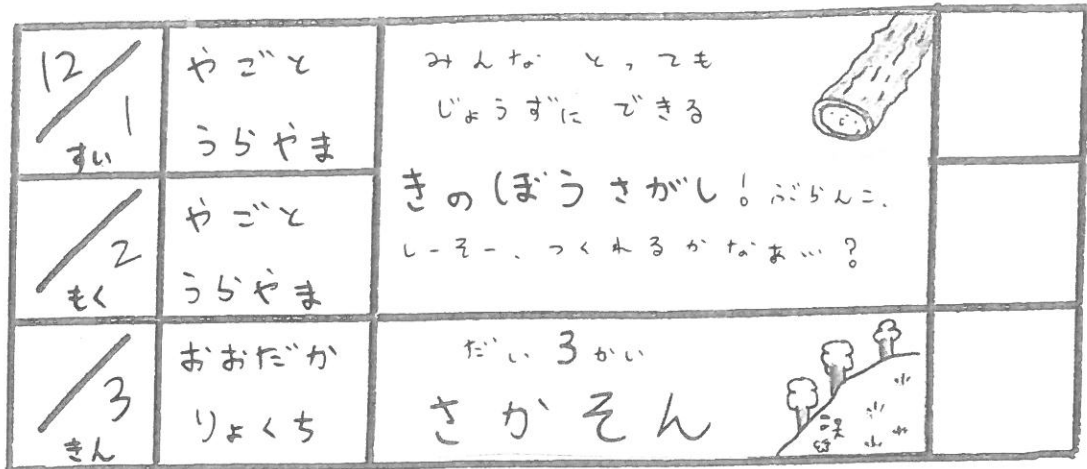 12/1
すい
やごと
うらやま
みんな とっても
じょうずに できる
きのぼうさがし! ぶらんこ、
しーそー、つくれるかなぁ…?
/2
もく
やごと
うらやま
/3
きん
おおだか
りょくち
だい3かい
さかそん